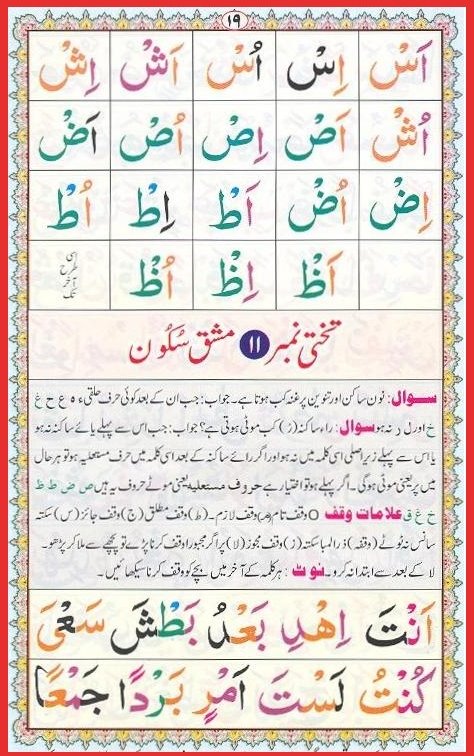 ١٩
اَسْ اِسْ اُسْ اَشْ اِشْ
اُشْ اَصْ اِصْ اُصْ اَضْ
اِضْ اُضْ اَطْ اِطْ اُطْ
اَظْ اِظْ اُظْ اسی طرح آخر تک
تختی نمبر ۱۱ مشق سُکُون
سوال: نون ساکن اور تنوین پر غنہ کب ہوتا ہے۔ جواب: جب ان کے بعد کوئی حرف حلقی ء ہ ع ح غ
خ اور ل ر نہ ہو سوال: راء ساکنہ (رْ) کب موٹی ہوتی ہے؟ جواب: جب اس سے پہلے یائے ساکنہ نہ ہو
یا اس سے پہلے زیر اصلی اسی کلمہ میں نہ ہو اور اگر رائے ساکنہ کے بعد اسی کلمہ میں حرف مستعلیہ ہو تو ہر حال
میں پُر یعنی موٹی ہوگی۔ اگر پہلے ہو تو اختیار ہے حروف مستعلیہ یعنی موٹے حروف یہ ہیں ص ض ط ظ
خ غ ق علامات وقف O وقف تام (مـ) وقف لازم۔ (ط) وقف مطلق (ج) وقف جائز (س) سکتہ
سانس نہ ٹوٹے (وقفہ) ذرا لمبا سکتہ (ز) وقف مجوز (لا) پر اگر مجبوراً وقف کرنا پڑے تو پیچھے سے ملا کر پڑھو۔
لا کے بعد سے ابتدا نہ کرو۔ نوٹ: ہر کلمہ کے آخر میں بچے کو وقف کرنا سیکھائیں۔
اَنْتَ اِهْدِ بَعْدُ بَطْشَ سَعْىَ
كُنْتُ لَسْتَ اَمْرٍ بَرْدًا جَمْعًا